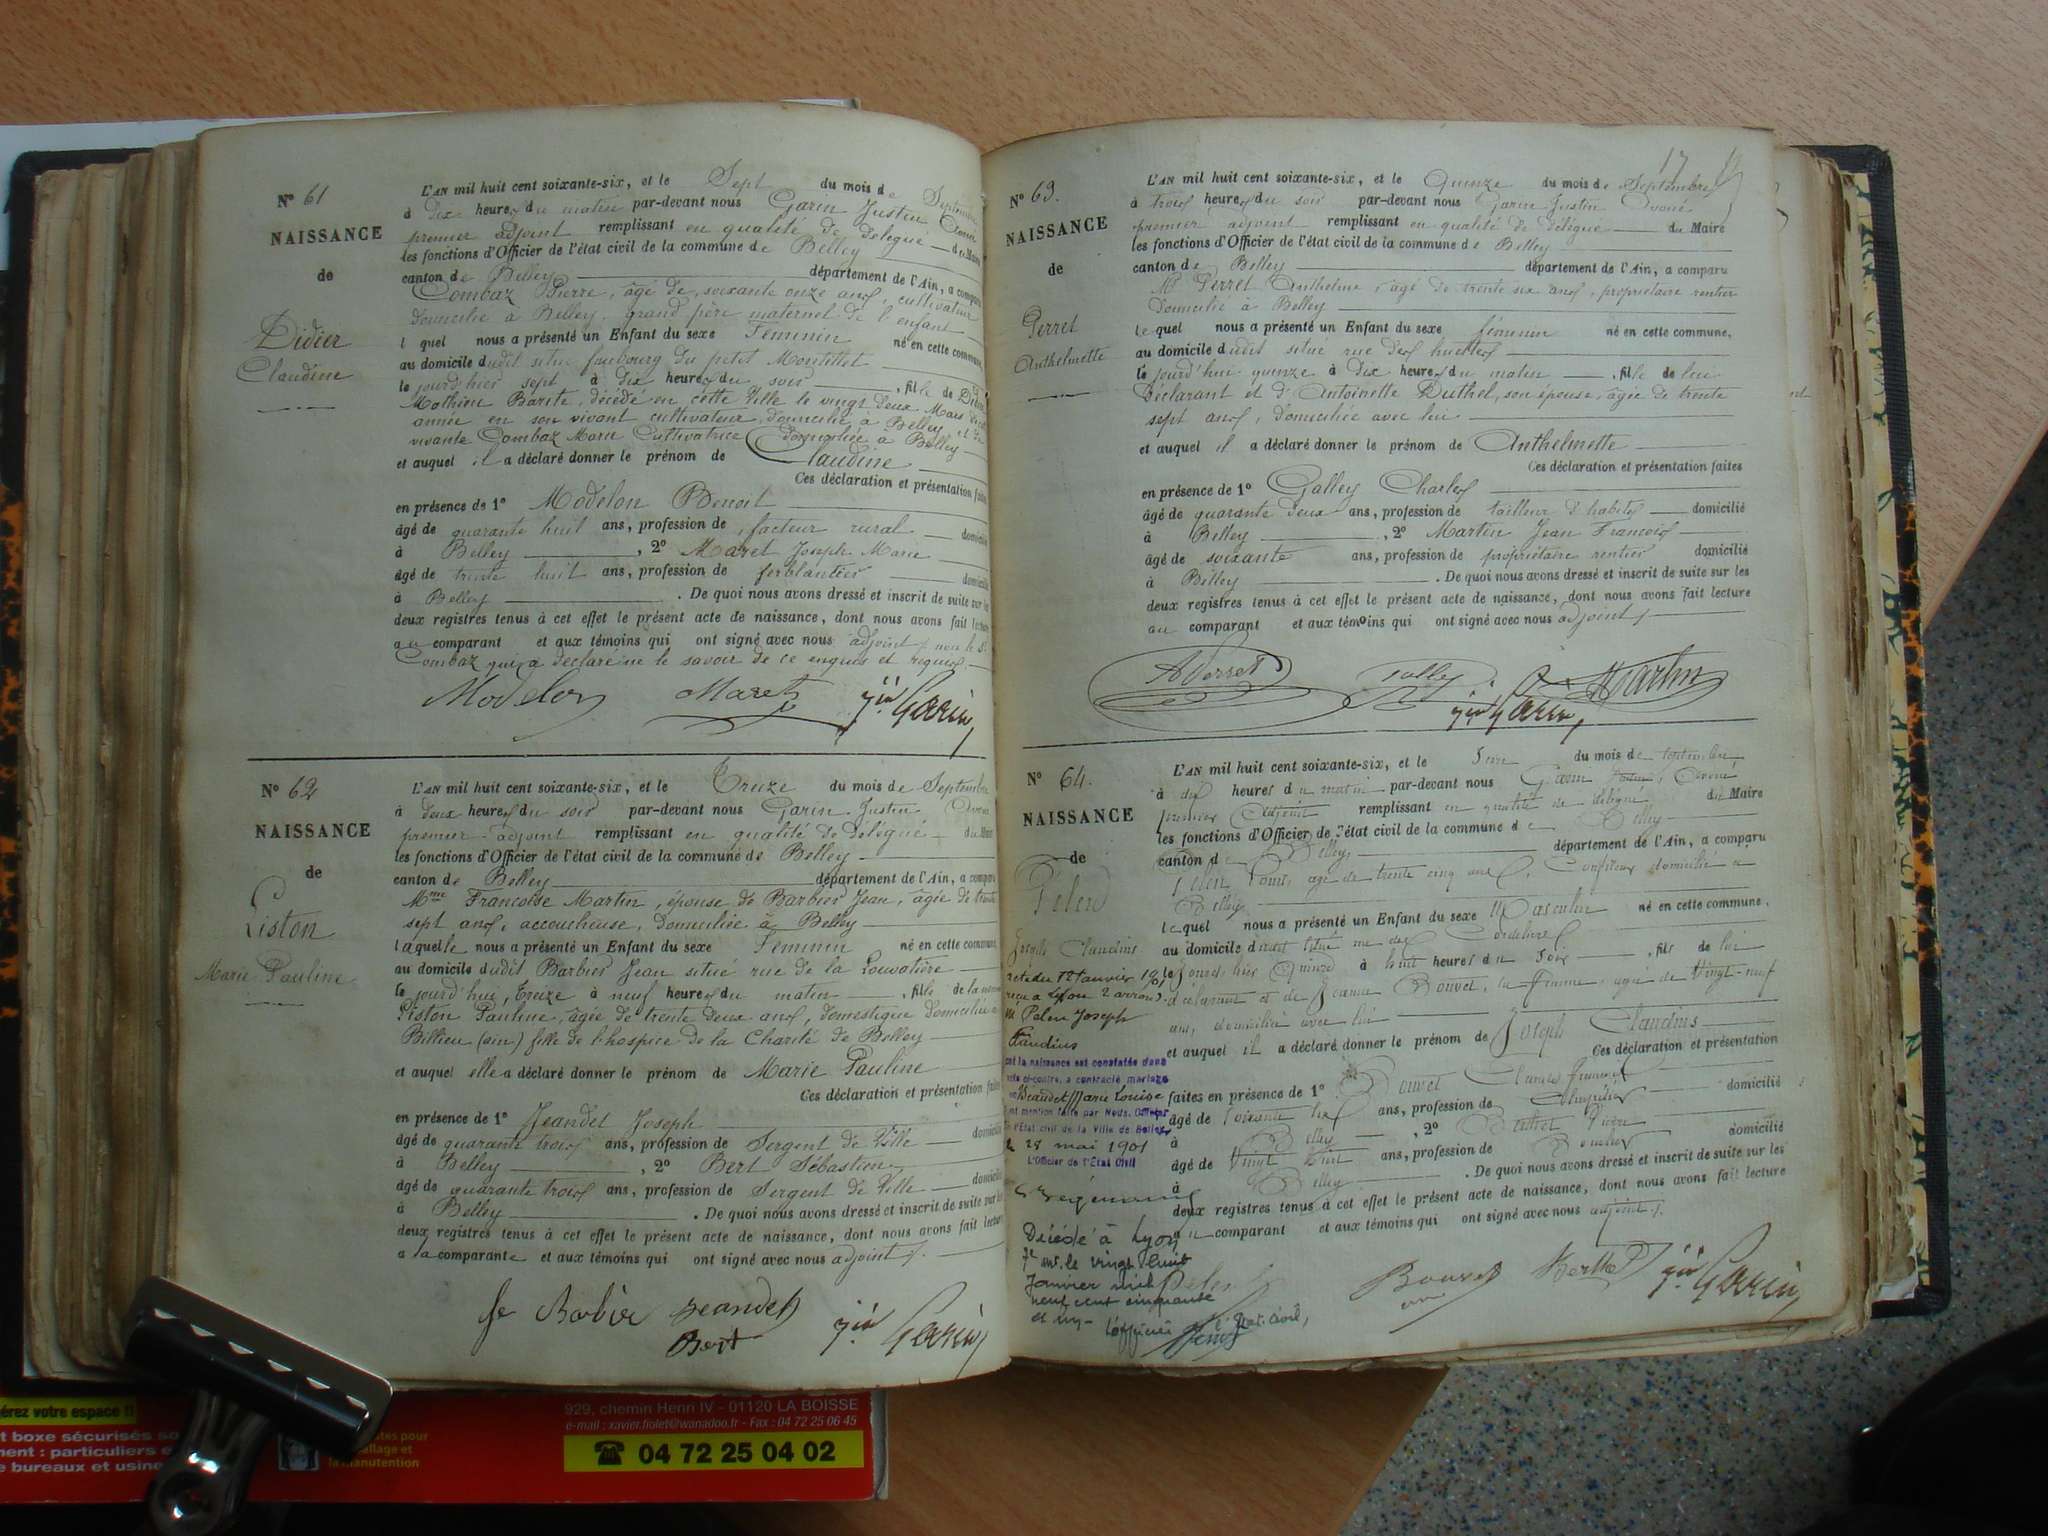 N° 61
NAISSANCE
de
Didier
Claudine
L'AN mil huit cent soixante-six, et le Sept du mois de Septembre
à dix heures du matin par-devant nous Garin Justin
premier adjoint remplissant en qualité de délégué du Maire
les fonctions d'Officier de l'état civil de la commune de Belley
canton de Belley département de l'Ain, a comparu
Combaz Pierre, âgé de soixante onze ans, cultivateur
domicilié à Belley, grand père maternel de l'enfant
lequel nous a présenté un Enfant du sexe Féminin né en cette commune,
au domicile dudit situé faubourg du petit
le jourd'hier sept à dix heures du soir, fille de Didier
Mathieu décédé en cette Ville le vingt deux Mars
année en son vivant cultivateur, domicilié à Belley et de
vivante Combaz Marie Cultivatrice domiciliée à Belley
et auquel il a déclaré donner le prénom de Claudine
Ces déclaration et présentation faites
en présence de 1° Modelon Benoit
âgé de quarante huit ans, profession de facteur rural domicilié
à Belley, 2° Maret Joseph Marie
âgé de trente huit ans, profession de ferblantier domicilié
à Belley. De quoi nous avons dressé et inscrit de suite sur les
deux registres tenus à cet effet le présent acte de naissance, dont nous avons fait lecture
au comparant et aux témoins qui ont signé avec nous adjoint, non le Sr
Combaz qui a déclaré ne le savoir de ce enquis et requis.
Modelon Maret Jin Garin
N° 62
NAISSANCE
de
Liston
Marie Pauline
L'AN mil huit cent soixante-six, et le Treize du mois de Septembre
à deux heures du soir par-devant nous Garin Justin Avoué
premier adjoint remplissant en qualité de délégué du Maire
les fonctions d'Officier de l'état civil de la commune de Belley
canton de Belley département de l'Ain, a comparu
Mme Françoise Martin, épouse de Barbier Jean, âgée de trente
sept ans, accoucheuse, domiciliée à Belley
laquelle nous a présenté un Enfant du sexe Féminin né en cette commune,
au domicile dudit Barbier Jean situé rue de la
le jourd'hui, Treize à neuf heures du matin, fille de la
Liston Pauline, âgée de trente deux ans, domestique domiciliée à
Billieu (ain) fille de l'hospice de la Charité de Belley
et auquel elle a déclaré donner le prénom de Marie Pauline
Ces déclaration et présentation faites
en présence de 1° Jeandet Joseph
âgé de quarante trois ans, profession de Sergent de Ville domicilié
à Belley, 2° Bert Sébastien
âgé de quarante trois ans, profession de Sergent de Ville domicilié
à Belley. De quoi nous avons dressé et inscrit de suite sur les
deux registres tenus à cet effet le présent acte de naissance, dont nous avons fait lecture
a la comparante et aux témoins qui ont signé avec nous adjoint.
fe Barbier Jeandet Jin Garin
Bert
17
N° 63.
NAISSANCE
de
Perret
Anthelmette
L'AN mil huit cent soixante-six, et le Quinze du mois de Septembre
à trois heures du soir par-devant nous Garin Justin Avoué
premier adjoint remplissant en qualité de délégué du Maire
les fonctions d'Officier de l'état civil de la commune de Belley
canton de Belley département de l'Ain, a comparu
Mr Perret Anthelme, âgé de trente six ans, propriétaire rentier
domicilié à Belley
lequel nous a présenté un Enfant du sexe féminin né en cette commune,
au domicile dudit situé rue des
le jourd'hui quinze à dix heures du matin, fille de lui
déclarant et d'Antoinette Duthel, son épouse, âgée de trente
sept ans, domiciliée avec lui
et auquel il a déclaré donner le prénom de Anthelmette
Ces déclaration et présentation faites
en présence de 1° Galley Charles
âgé de quarante deux ans, profession de tailleur d'habits domicilié
à Belley, 2° Martin Jean François
âgé de soixante ans, profession de propriétaire rentier domicilié
à Belley. De quoi nous avons dressé et inscrit de suite sur les
deux registres tenus à cet effet le présent acte de naissance, dont nous avons fait lecture
au comparant et aux témoins qui ont signé avec nous adjoint.
APerret Galley Martin
Jin Garin
N° 64.
NAISSANCE
de
Pelen
Joseph Claudius
L'AN mil huit cent soixante-six, et le Seize du mois de septembre
à dix heures du matin par-devant nous Garin Justin, Avoué
premier Adjoint remplissant en qualité de délégué du Maire
les fonctions d'Officier de l'état civil de la commune de Belley
canton de Belley département de l'Ain, a comparu
Pelen Louis, âgé de trente cinq ans, Confiseur domicilié à
Belley
lequel nous a présenté un Enfant du sexe Masculin né en cette commune,
au domicile dudit situé rue des Cordeliers
le jourd'hier Quinze à huit heures du Soir, fils de lui
déclarant et de Jeanne Bouvet, sa femme, agée de Vingt-neuf
ans, domiciliée avec lui
et auquel il a déclaré donner le prénom de Joseph Claudius
Ces déclaration et présentation
faites en présence de 1° Bouvet
âgé de soixante ans, profession de domicilié
à Belley, 2° Berthet Pierre
âgé de Vingt huit ans, profession de domicilié
à Belley. De quoi nous avons dressé et inscrit de suite sur les
deux registres tenus à cet effet le présent acte de naissance, dont nous avons fait lecture
au comparant et aux témoins qui ont signé avec nous adjoint.
Pelen Bouvet Berthet Jin Garin
acte du 12 Janvier 1901
reçu a Lyon 2 arrond.
M Pelen Joseph
Claudius
dont la naissance est constatée dans
acte ci-contre, a contracté mariage
Beaudet Marie Louise
dont mention faite par Nous, Officier
de l'État civil de la Ville de Belley
le 28 mai 1901
L'Officier de l'État Civil
Décédé à Lyon
7e arr. le vingt huit
Janvier mil
neuf cent cinquante
et un
l'officier d'état civil,
929, chemin Henri IV - 01120 LA BOISSE
e-mail : xavier.fiolet@wanadoo.fr - Fax : 04 72 25 06 45
04 72 25 04 02
gérez votre espace !!
t boxe sécurisés
ment : particuliers e
e bureaux et usine
tes pour
allage et
la manutention